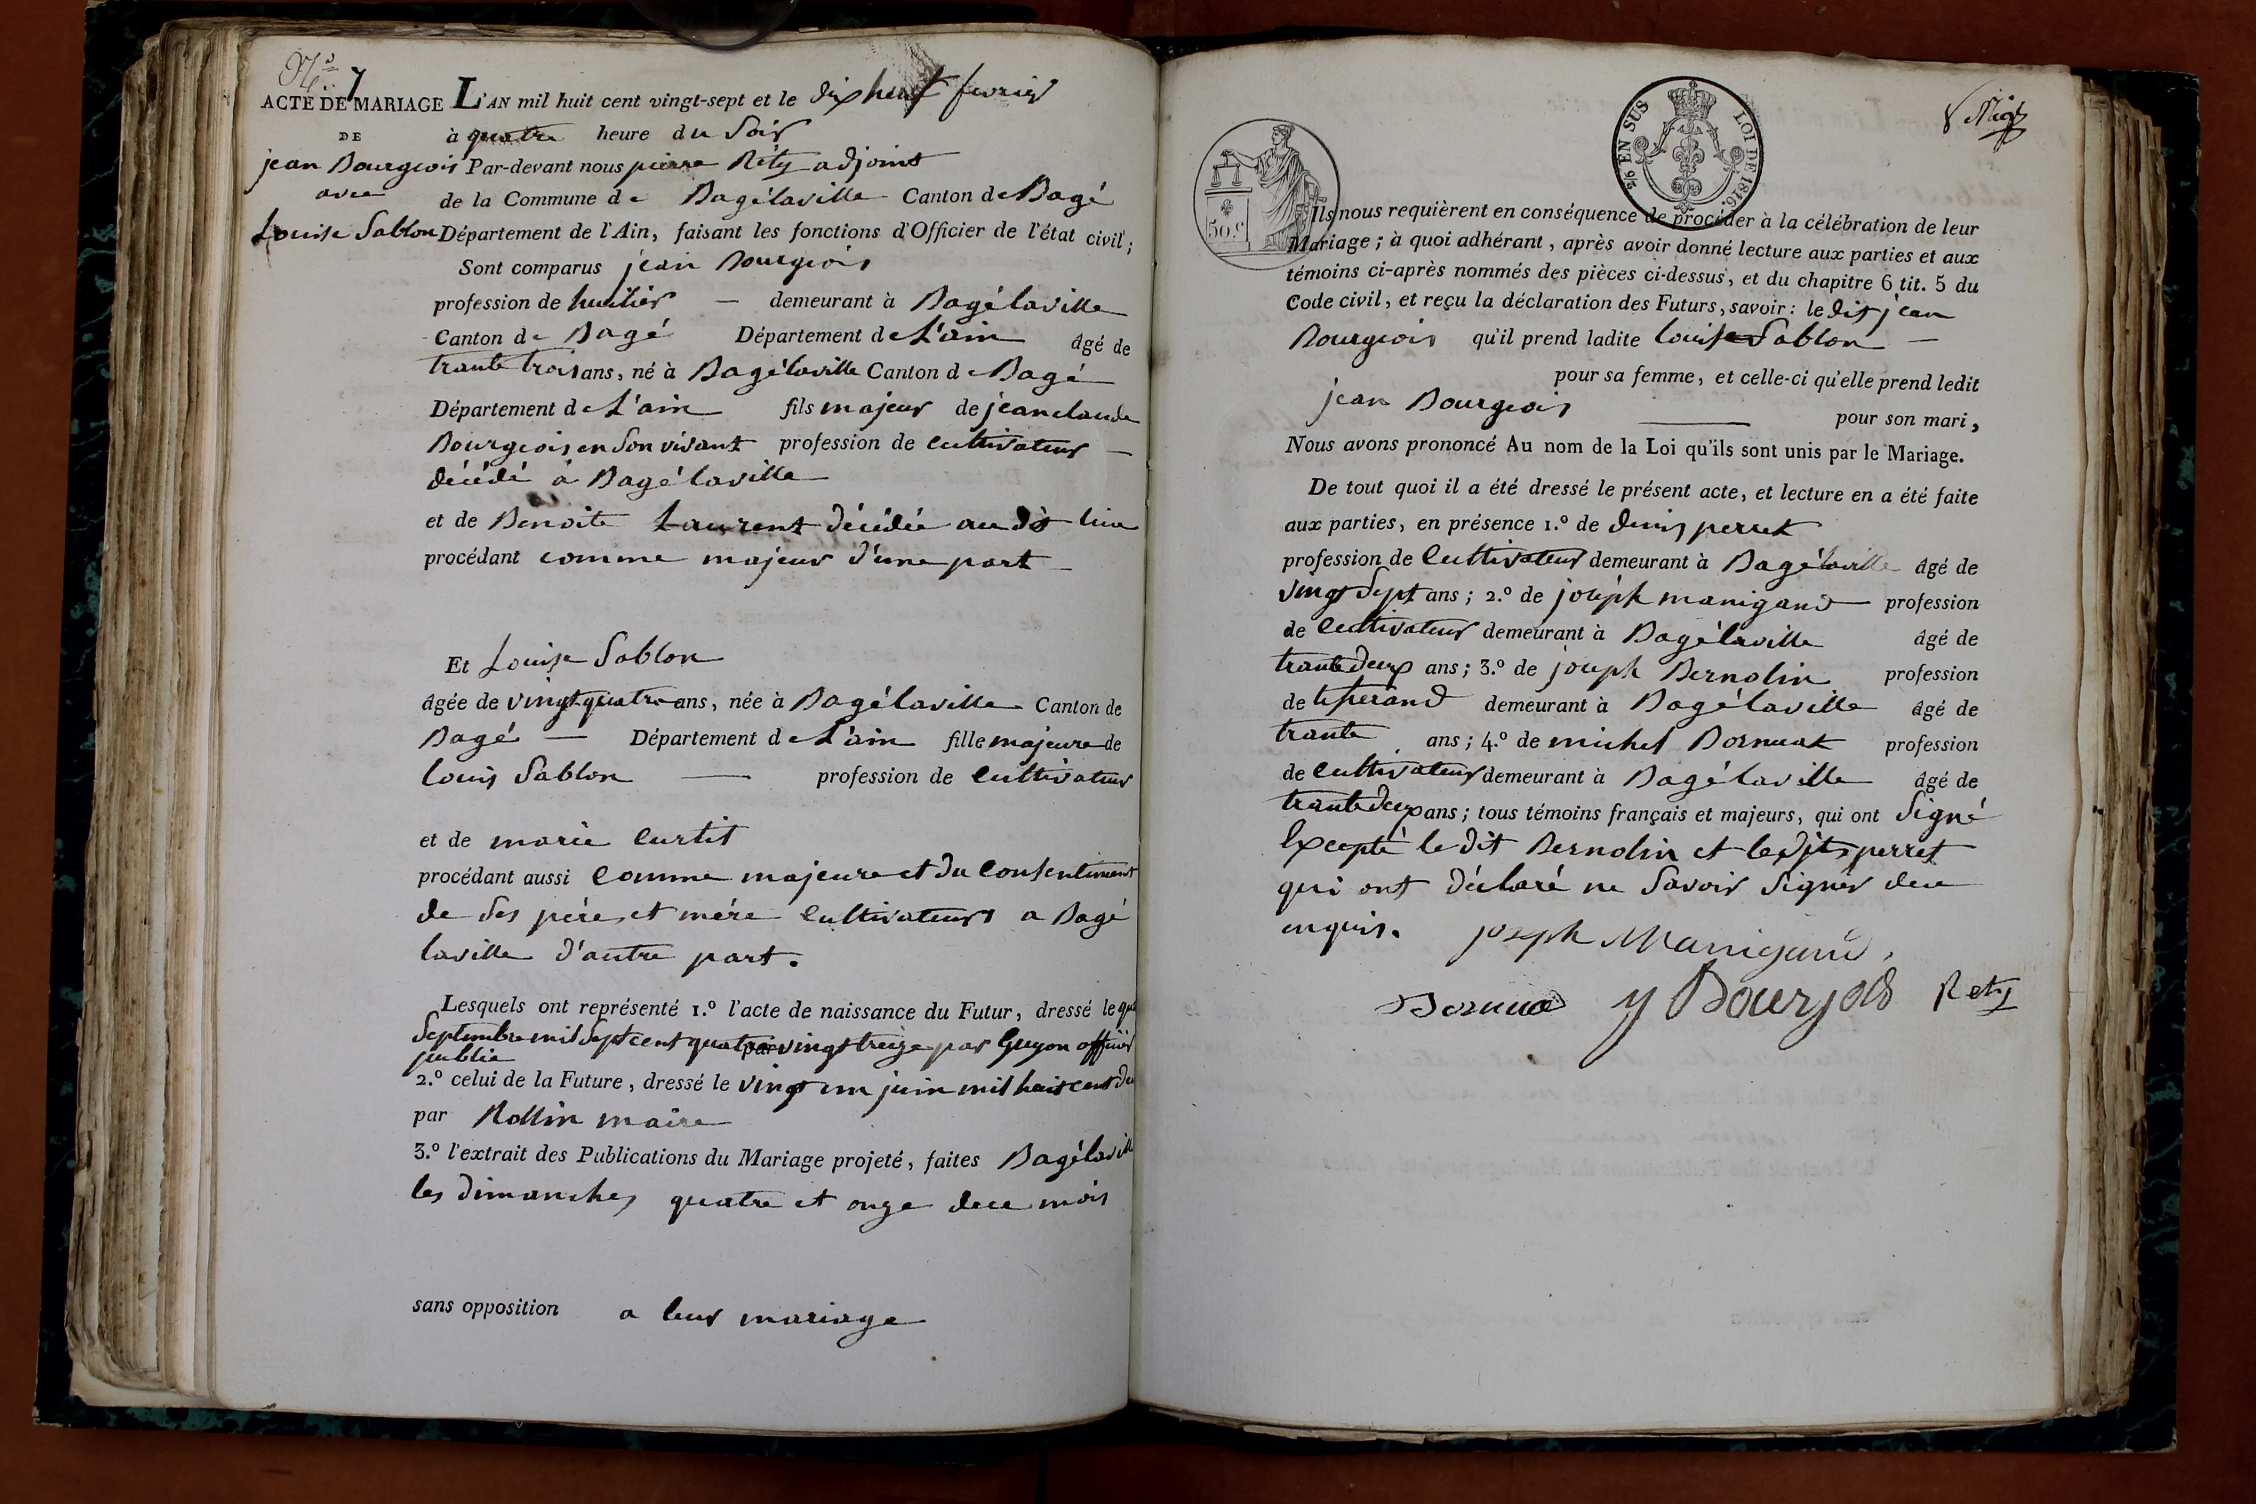 N.º 7
ACTE DE MARIAGE
DE
jean Bourgeois
avec
Louise Sablon
L'AN mil huit cent vingt-sept et le dix huit fevrier
à quatre heure du Soir
Par-devant nous pierre Réty adjoint
de la Commune de Bagélaville Canton de Bagé
Département de l'Ain, faisant les fonctions d'Officier de l'état civil;
Sont comparus jean Bourgeois
profession de huilier — demeurant à Bagélaville
Canton de Bagé Département de L'ain âgé de
trante trois ans, né à Bagélaville Canton de Bagé
Département de L'ain fils majeur de jean claude
Bourgeois en Son vivant profession de cultivateur —
décédé à Bagélaville
et de Benoite Laurent décédée au dit lieu
procédant comme majeur d'une part —
Et Louise Sablon
âgée de vingt quatre ans, née à Bagélaville Canton de
Bagé — Département de L'ain fille majeure de
louis Sablon — profession de Cultivateur
et de marie Curtit
procédant aussi Comme majeure et du Consentiment
de Ses père et mére Cultivateurs a Bagé
laville d'autre part.
Lesquels ont représenté 1.º l'acte de naissance du Futur, dressé le
Septembre mil Sept cent quatre vingt treize par Guyon officier
public
par
2.º celui de la Future, dressé le vingt un juin mil huit cent
par Rollin maire
3.º l'extrait des Publications du Mariage projeté, faites Bagélaville
les dimanches quatre et onze dece mois
sans opposition a leur mariage
50.C
2/6 EN SUS
LOI DE 1816.
Ils nous requièrent en conséquence de procéder à la célébration de leur
Mariage; à quoi adhérant, après avoir donné lecture aux parties et aux
témoins ci-après nommés des pièces ci-dessus, et du chapitre 6 tit. 5 du
Code civil, et reçu la déclaration des Futurs, savoir: le dit jean
Bourgeois qu'il prend ladite louise Sablon —
pour sa femme, et celle-ci qu'elle prend ledit
jean Bourgeois — pour son mari,
Nous avons prononcé Au nom de la Loi qu'ils sont unis par le Mariage.
De tout quoi il a été dressé le présent acte, et lecture en a été faite
aux parties, en présence 1.º de denis perret
profession de Cultivateur demeurant à Bagélaville âgé de
vingt Sept ans; 2.º de joséph manigand profession
de Cultivateur demeurant à Bagélaville âgé de
trante deux ans; 3.º de joseph Bernolin profession
de tisserand demeurant à Bagélaville âgé de
trante ans; 4.º de michel Bornuat profession
de Cultivateur demeurant à Bagélaville âgé de
trante deux ans; tous témoins français et majeurs, qui ont Signé
Excepté le dit Bernolin et ledit perret
qui ont déclaré ne Savoir Signer dece
enquis. joseph Manigand,
Bornua y Bourjois Rety